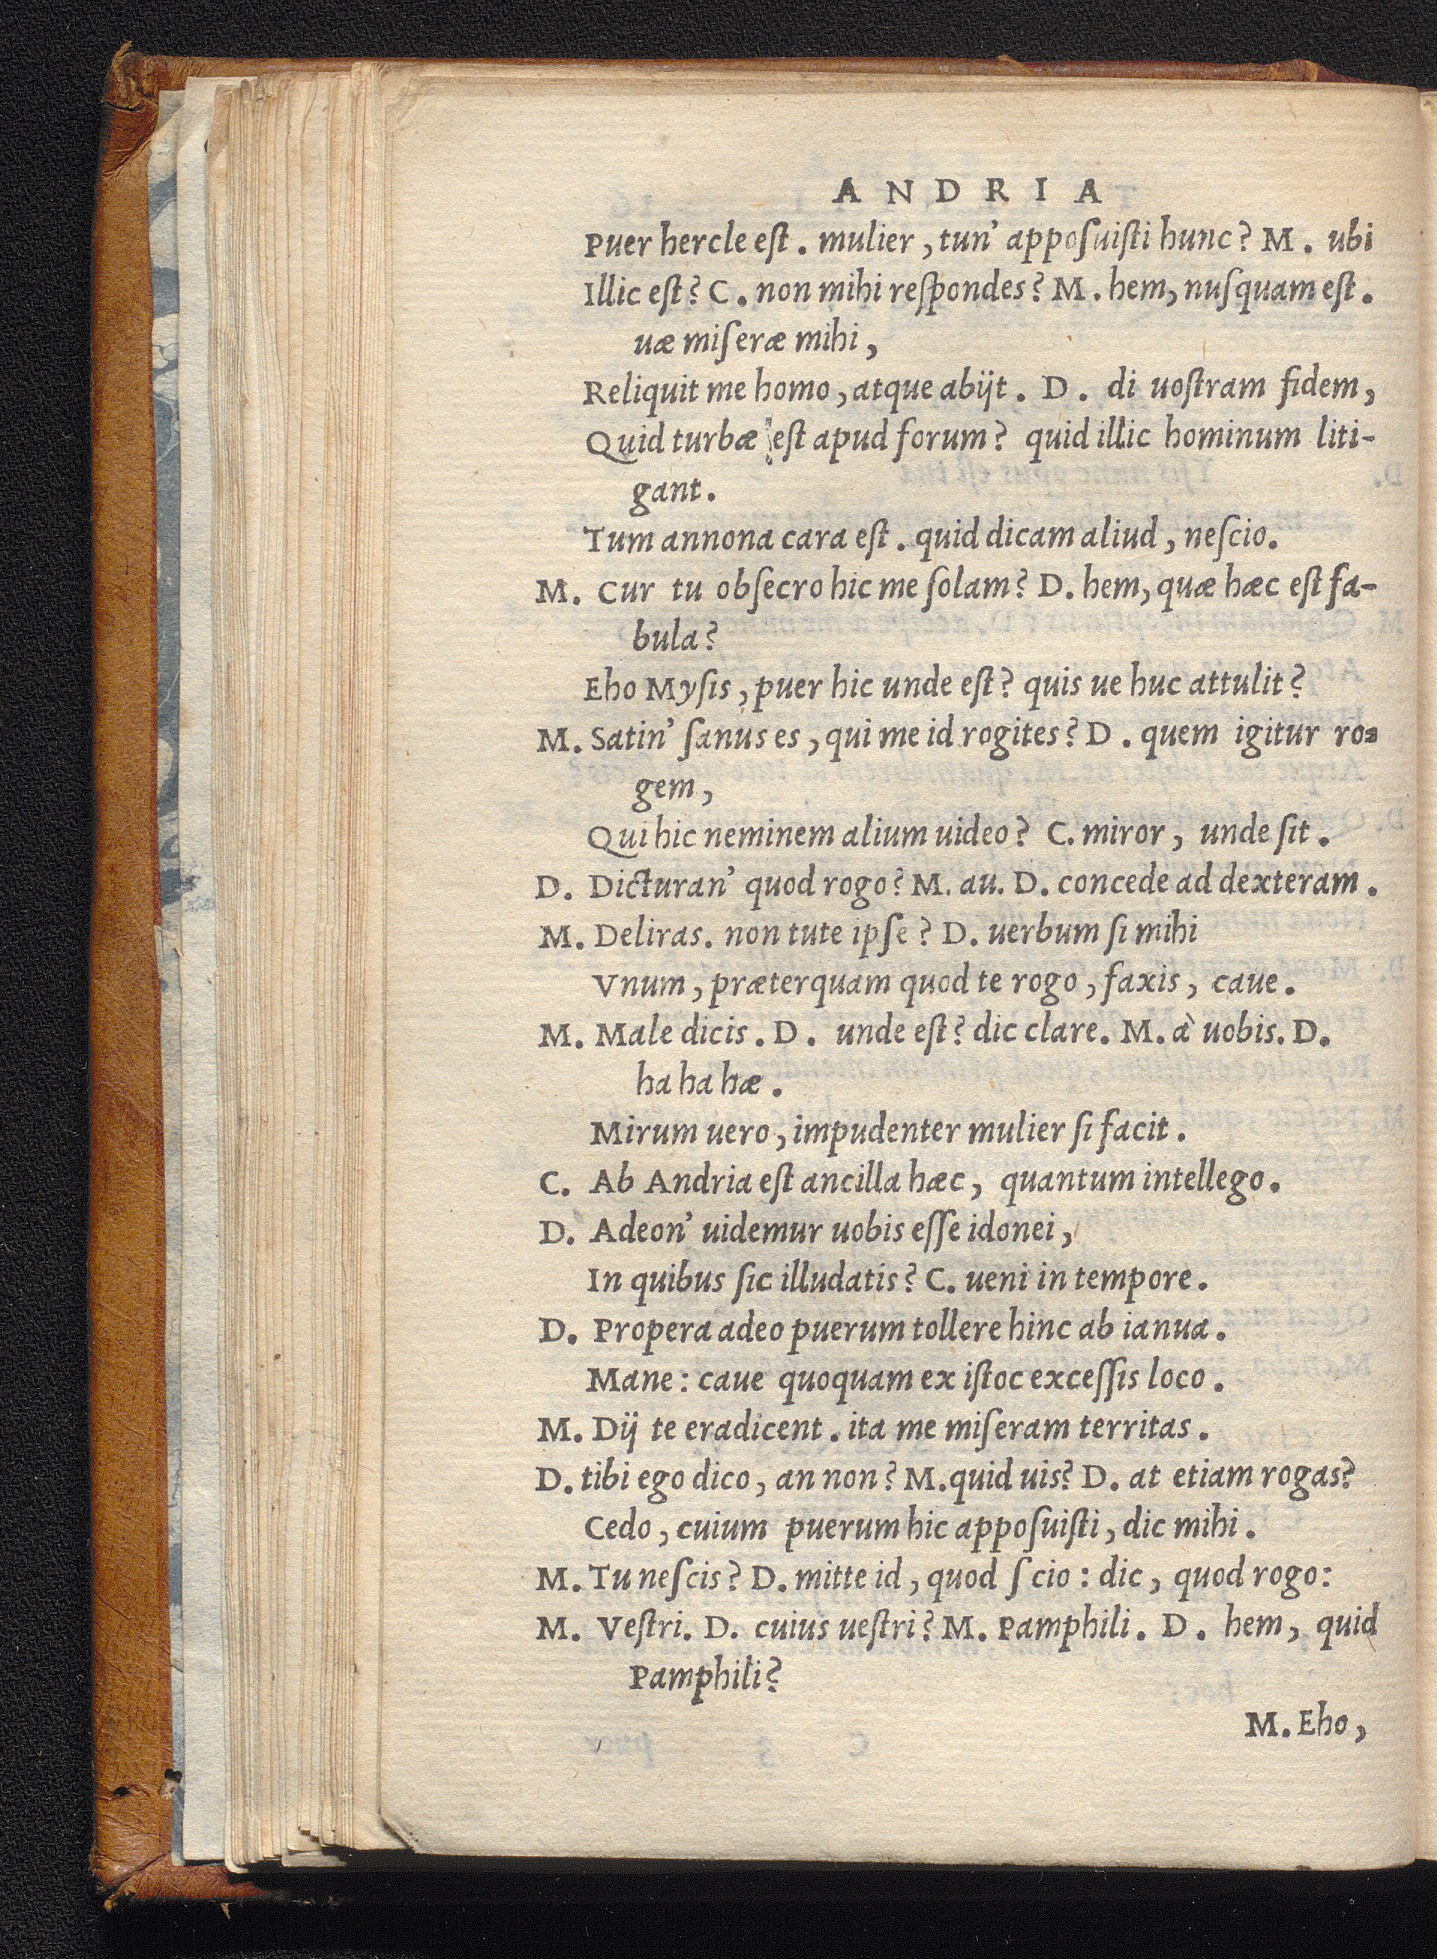 ANDRIA
Puer hercle est. mulier, tun' apposuisti hunc? M. ubi
Illic est? C. non mihi respondes? M. hem, nusquam est.
uæ miseræ mihi,
Reliquit me homo, atque abijt. D. di uostram fidem,
Quid turbæ est apud forum? quid illic hominum liti-
gant.
Tum annona cara est. quid dicam aliud, nescio.
M. Cur tu obsecro hic me solam? D. hem, quæ hæc est fa-
bula?
Eho Mysis, puer hic unde est? quis ue huc attulit?
M. Satin' sanus es, qui me id rogites? D. quem igitur ro-
gem,
Qui hic neminem alium uideo? C. miror, unde sit.
D. Dicturan' quod rogo? M. au. D. concede ad dexteram.
M. Deliras. non tute ipse? D. uerbum si mihi
Vnum, præterquam quod te rogo, faxis, caue.
M. Male dicis. D. unde est? dic clare. M. à uobis. D.
ha ha hæ.
Mirum uero, impudenter mulier si facit.
C. Ab Andria est ancilla hæc, quantum intellego.
D. Adeon' uidemur uobis esse idonei,
In quibus sic illudatis? C. ueni in tempore.
D. Propera adeo puerum tollere hinc ab ianua.
Mane: caue quoquam ex istoc excessis loco.
M. Dij te eradicent. ita me miseram territas.
D. tibi ego dico, an non? M. quid uis? D. at etiam rogas?
Cedo, cuium puerum hic apposuisti, dic mihi.
M. Tu nescis? D. mitte id, quod scio: dic, quod rogo:
M. Vestri. D. cuius uestri? M. Pamphili. D. hem, quid
Pamphili?
M. Eho,